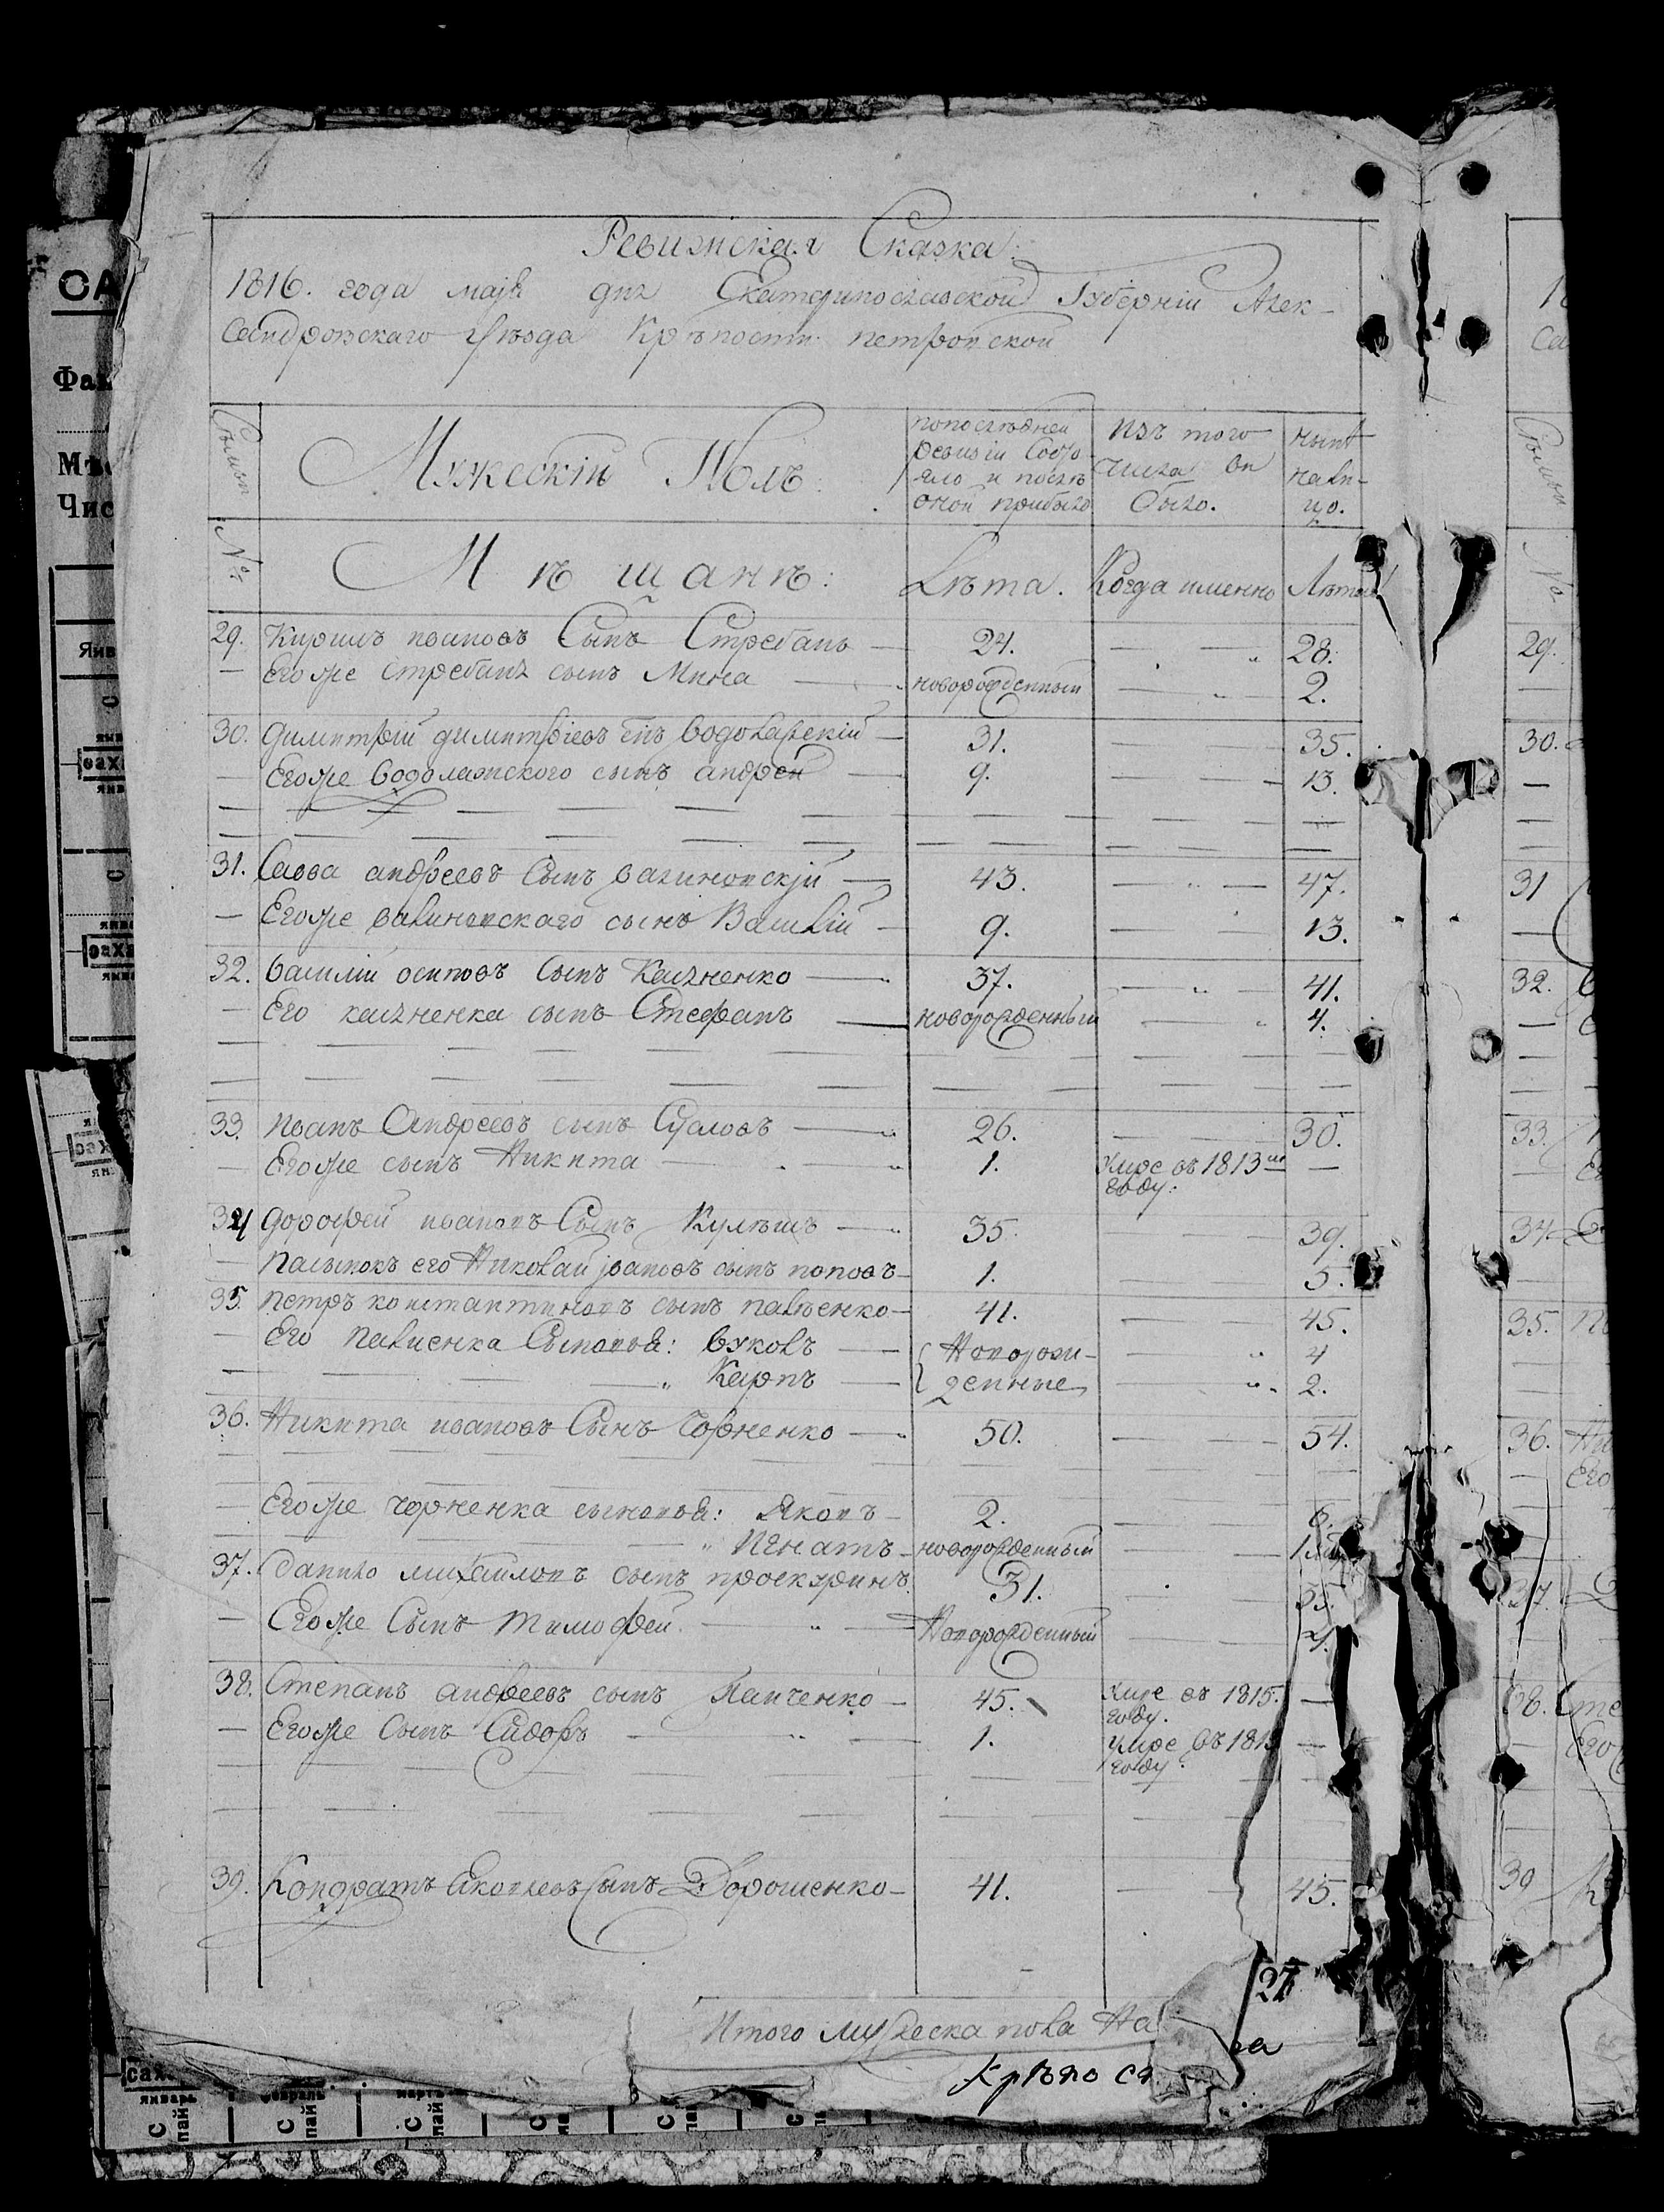 Ревижская Сказка:
1816. года маія дня Екатеринославской Губерніи Алек-
сандровскаго уѣзда Крѣпости петровской
Семьи
Мужескій Полъ:
попослѣдней
ревизіи Состо
яло и послѣ
оной прибыло
Изъ того
числа вы
было.
нынѣ
нали-
цо.
№
Мѣщанѣ:
Лѣта. Когда именно Лѣта
29. Кирилъ ивановъ Сынъ Стребань — 24. 28.
— Егоже Стребаня сынъ Мина новорожденный 2.
30. Димитрій димитріевъ снъ Водолажскій — 31. 35.
— Егоже Водолажского сынъ андрей 9. 13.
31. Савва андреевъ Сынъ валиновскій — 43. 47.
— Егоже валиновскаго сынъ Василій 9. 13.
32. Василій осиповъ Сынъ Калзненко 37. 41.
— Его калзненка сынъ Стефанъ новорожденный 4.
33. иванъ Андреевъ сынъ Суловъ 26. 30.
— Егоже сынъ Никита 1. Умре въ 1813м —
году:
34 дорофей ивановъ Сынъ Кулѣшъ 35. 39.
— Пасынокъ его Николай јвановъ сынъ поповъ 1. 5.
35. петръ константиновъ сынъ павленко 41. 45.
— Его Павленка Сыновья: Вуколъ Новорож- 4
— Карпъ денные 2.
36. Никита ивановъ Сынъ Чорненко 50. 54.
— Егоже чорненка сыновья: Яковъ 2. 6.
" Игнатъ новорожденный 1
37. Данило михайловъ сынъ проскуринъ 31. 35.
— Егоже Сынъ Тимофей. Новорожденный
38. Степанъ андреевъ сынъ Ганченко 45. Умре въ 1815. —
году.
— Егоже Сынъ Сидоръ 1. умре въ 181
году.
39. Кондратъ Яковлевъ Сынъ Дорошенко 41. 45.
27
Итого мужеска пола На
ка
Крѣпос
29.
30.
31
32.
33.
34
35.
36.
Его
37.
38.
Его
39
Январь
февраль
мартъ